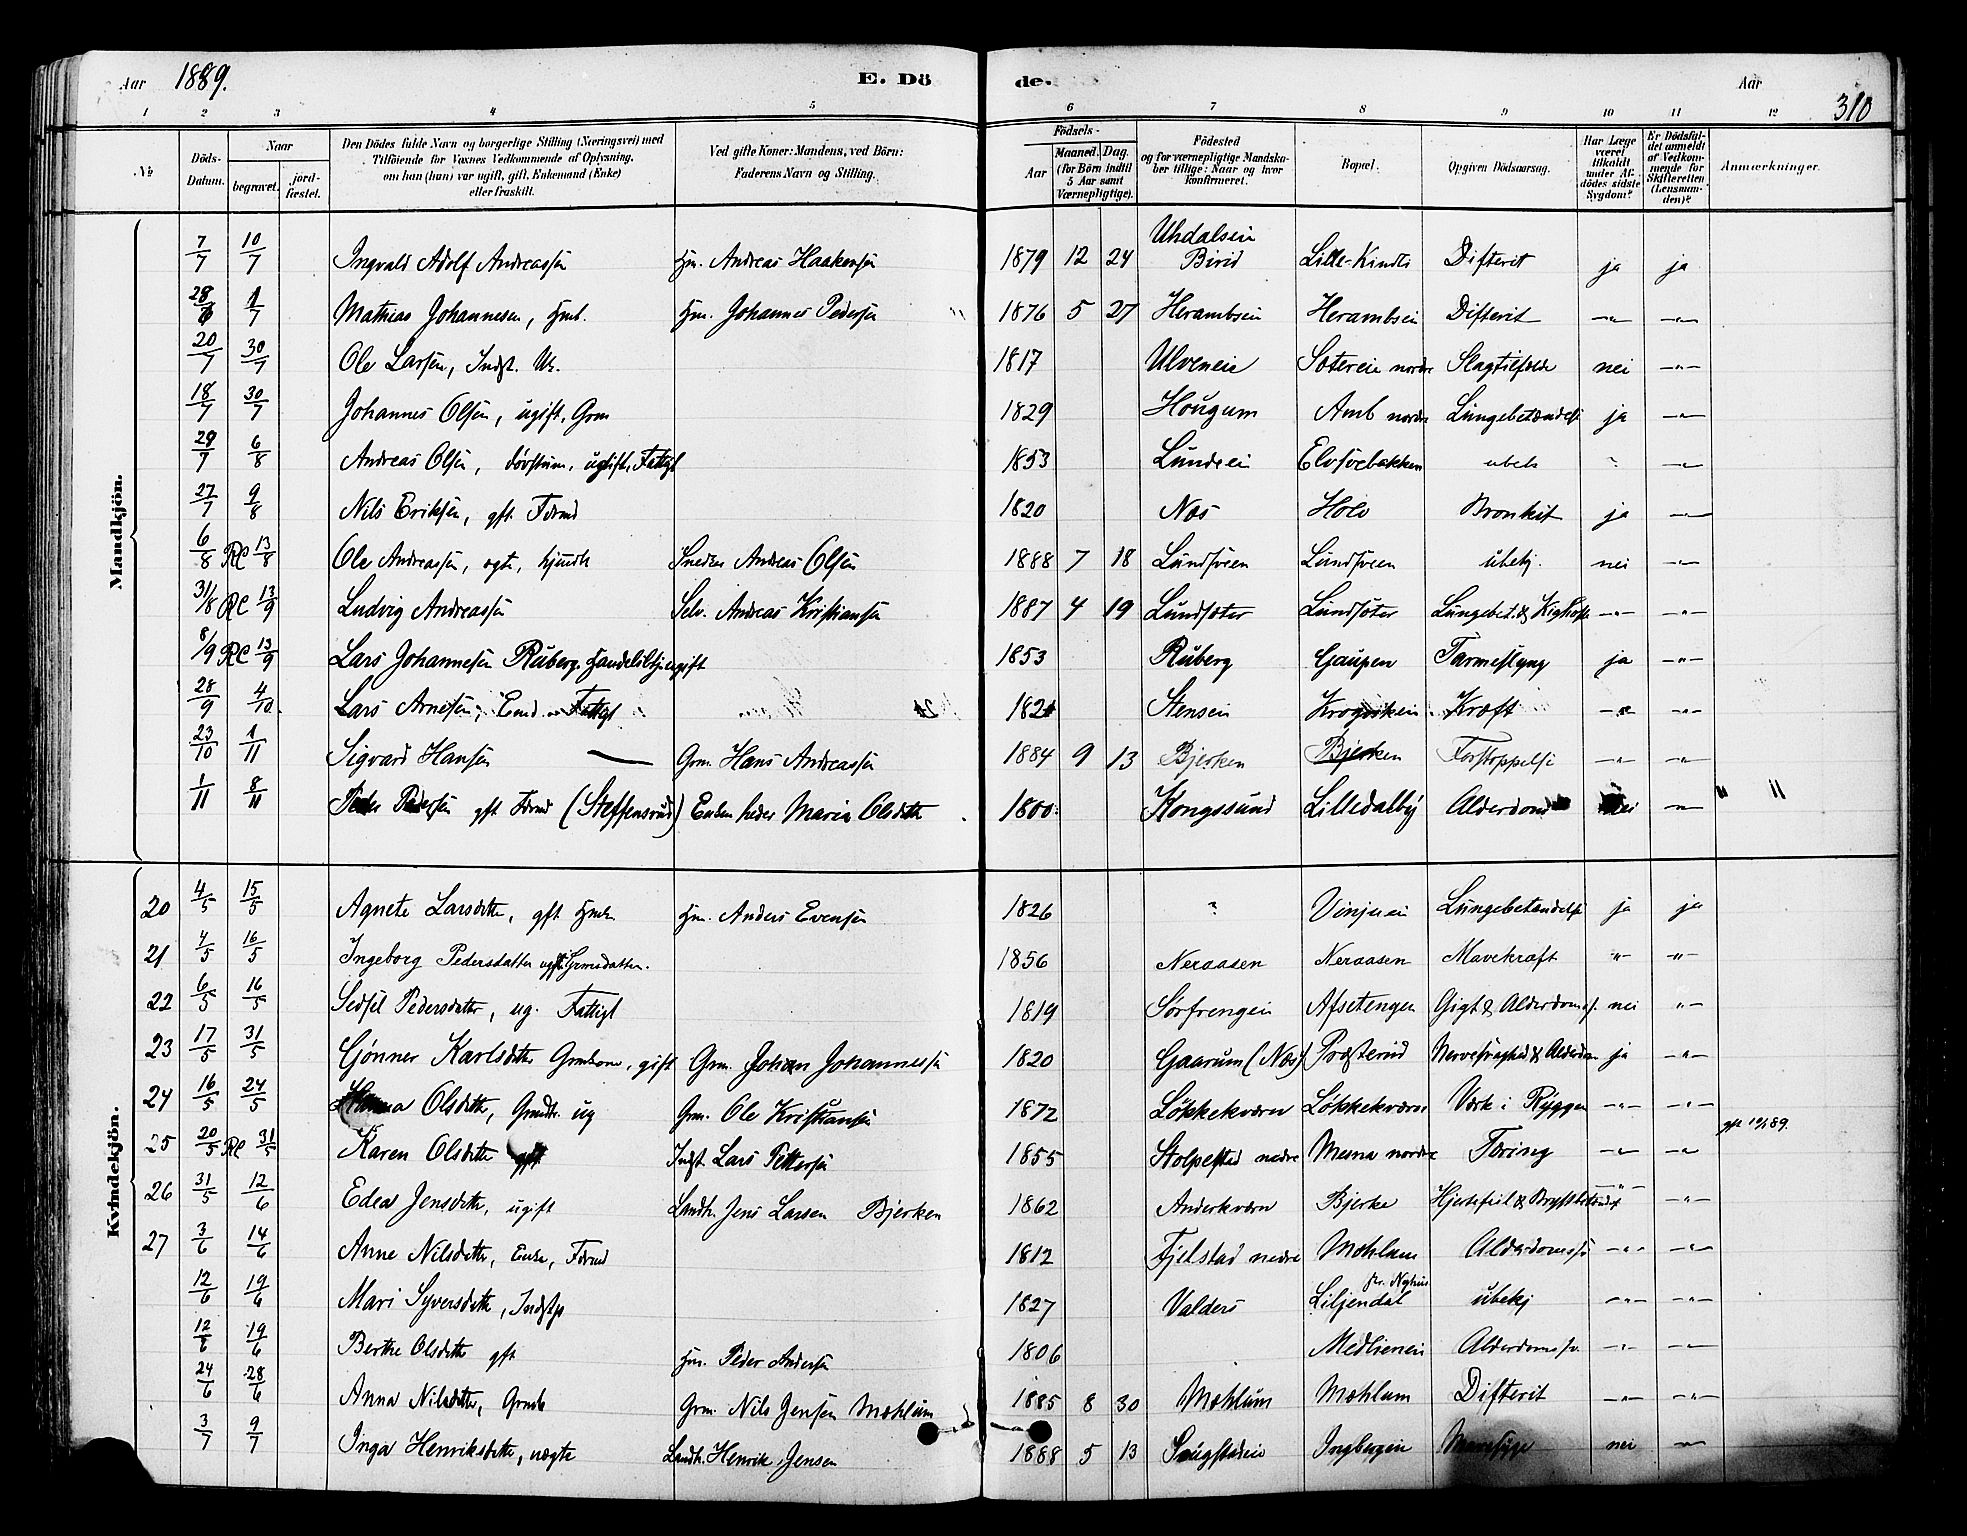 Aar 1889. E. Dö de. Aar 310
1 2 3 4 5 6 7 8 9 10 11 12
№ Döds-Datum. Naar begravet. jord-fæstet. Den Dödes fulde Navn og borgerlige Stilling (Næringsvei) med Tilföiende for Voxnes Vedkommende af Oplysning, om han (hun) var ugift, gift, Enkemand (Enke) eller fraskilt. Ved gifte Koner: Mandens, ved Börn: Faderens Navn og Stilling. Födsels- Aar Maaned. Dag. (for Börn indtil 5 Aar samt Værnepligtige). Födested og for værnepligtige Mandskaber tillige: Naar og hvor Konfirmeret. Bopæl. Opgiven Dödsaarsag. Har Læge været tilkaldt under Afdödes sidste Sygdom? Er Dödsfaldet anmeldt af Vedkommende for Skifteretten (Lensmanden)? Anmærkninger.
Mandkjön.
7/7 10/7 Ingvald Adolf Andreassen Hm. Andreas Haakensen 1879 12 24 Uhdalseie Birid Lille-Kindli Difterit ja ja
28/6 1/7 Mathias Johannesen, Hmb. Hm. Johannes Pedersen 1876 5 27 Herambseie Herambseie Difterit —"— —"—
20/7 30/7 Ole Larsen, Indst. 1817 Ulveneie Sætereie nordre Slagtilfælde nei —"—
18/7 30/7 Johannes Olsen, ugift, Grm 1829 Hougum Amb nordre Lungebetændelse ja —"—
29/7 6/8 Andreas Olsen, døvstum, ugift, Fattigl 1853 Lundeie ubek —"—
27/7 9/8 Nils Eriksen, gft. Førmd 1820 Næs Holo Bronkit ja —"—
6/8 13/8 Ole Andreassen, ægte, Snedker Andreas Olsen 1888 7 18 Lundsveen Lundsveen ubekj. nei —"—
31/8 13/9 Ludvig Andreassen Selv. Andreas Kristiansen 1887 4 19 Lundsæter Lundsæter Lungebet. & Kighoste —"— —"—
8/9 13/9 Lars Johannesen Ruberg. 1853 Ruberg Gaupen Tarmeslyng ja —"—
28/9 4/10. Lars Arnesen, Fattigl Stenseie Kræft —"— —"—
23/10 1/11 Sigvard Hansen — Grm. Hans Andreassen 1884 9 13 Bjerken Bjerken Forstoppelse —"— —"—
1/11 8/11 Peder Pedersen gft Førmd (Steffensrud) Enken heder Maria Olsdtr 1800. Kongssund Lilledalby Alderdom nei —"— " "
Kvindekjön.
20 4/5 15/5 Agnete Larsdtr, gft Hmk. Hm. Anders Evensen 1826 ? Vinjueie Lungebetændelse ja ja
21 4/5 16/5 Ingeborg Pedersdatter ugft Grmsdatter. 1856 Neraasen Neraasen Mavekræft —"— —"—
22 6/5 16/5 Sedsel Pedersdtr, ug. Fattigl 1819 Sørfrengeie Afsetengen Gigt & Alderdomss. nei "—
23 17/5 31/5 Gjønner Karlsdtr Grmkone, gift Grm. Johan Johannessen 1820 Gaarum (Næs) Præsterud Nervesvaghed & Alderdom ja —"—
24 16/5 24/5 Olsdtr, Grmdtr. ug Grm. Ole Kristiansen 1872 Løkkekværn Løkkekværn Værk i Ryggen —"— —"—
25 20/5 31/5 Karen Olsdtr gft Indst. Lars Pettersen 1855 Stolpestad nedre Messna nordre Tæring —"— —"—
26 31/5 12/6 Edea Jensdtr, ugift Landh. Jens Larsen Bjerken 1862 Anderkværn Bjerke Hjertefeil & Brystbetændel. —"— —"—
27 3/6 14/6 Anne Nilsdtr, Enke, Førmd 1812 Fjelstad nedre Mæhlum Alderdomss. —"— —"—
12/6 19/6 Mari Syversdtr, Indstp 1827 Valders Liljendal ubekj —"— —"—
12/6 19/6 Berthe Olsdtr gft Hm. Peder Andersen 1806 Medlieneie Alderdomssv. —"— —"—
24/6 28/6 Anna Nilsdtr, Grmb Grm. Nils Jensen Mæhlum 1885 8 30 Mæhlum Mæhlum Difterit —"— —"—
3/7 9/7 Inga Henriksdtr, uægte Landh. Henrik Jensen 1888 5 13 Saugstadeie Ingbergeie Mavesyge nei —"—